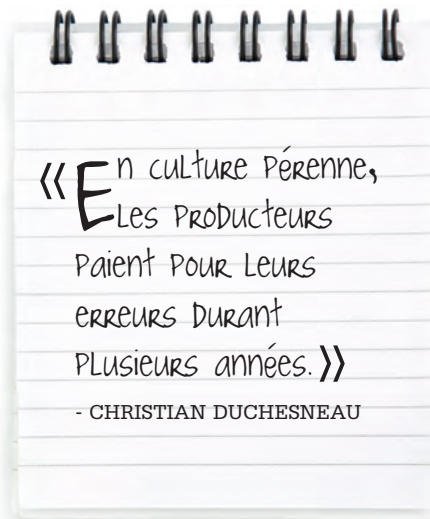 « En culture pérenne,
les producteurs
paient pour leurs
erreurs durant
plusieurs années. »
- CHRISTIAN DUCHESNEAU